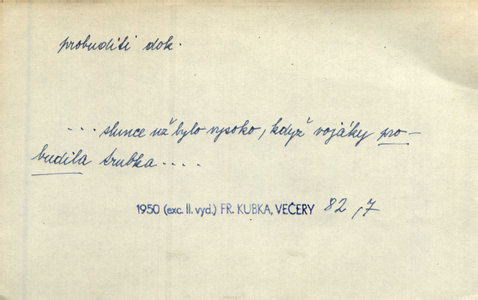 probuditi dok.
... slunce už bylo vysoko, když vojáky pro-
budila trubka....
1950 (exc. II. vyd.) FR. KUBKA, VEČERY 82,7